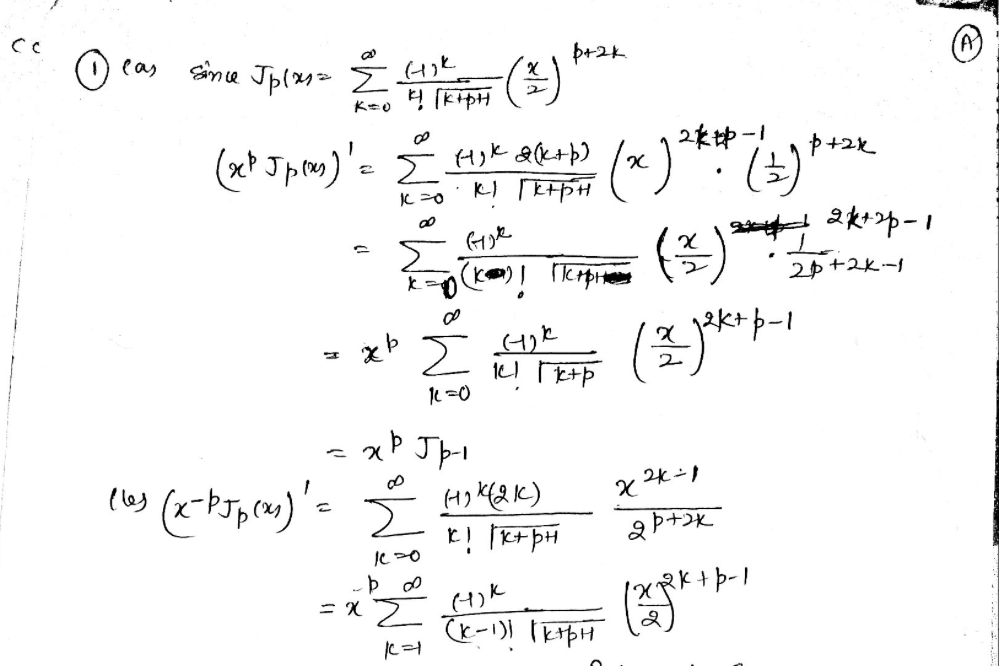 CC
(A)
① (a) Since Jp(x) = ∑_{k=0}^{∞} (-1)^k / (k! Γ(k+p+1)) (x/2)^{p+2k}
(x^p Jp(x))' = ∑_{k=0}^{∞} (-1)^k 2(k+p) / (k! Γ(k+p+1)) (x)^{2k+2p-1} · (1/2)^{p+2k}
= ∑_{k=0}^{∞} (-1)^k / ((k)! Γ(k+p)) (x/2)^{2k+2p-1} · 1/2p+2k-1
= x^p ∑_{k=0}^{∞} (-1)^k / (k! Γ(k+p)) (x/2)^{2k+p-1}
= x^p J_{p-1}
(b) (x^{-p} Jp(x))' = ∑_{k=0}^{∞} (-1)^k (2k) / (k! Γ(k+p+1)) x^{2k-1} / 2^{p+2k}
= x^{-p} ∑_{k=1}^{∞} (-1)^k / ((k-1)! Γ(k+p+1)) (x/2)^{2k+p-1}